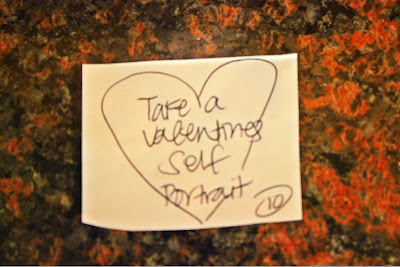 Take a
valentines
Self
Portrait
10